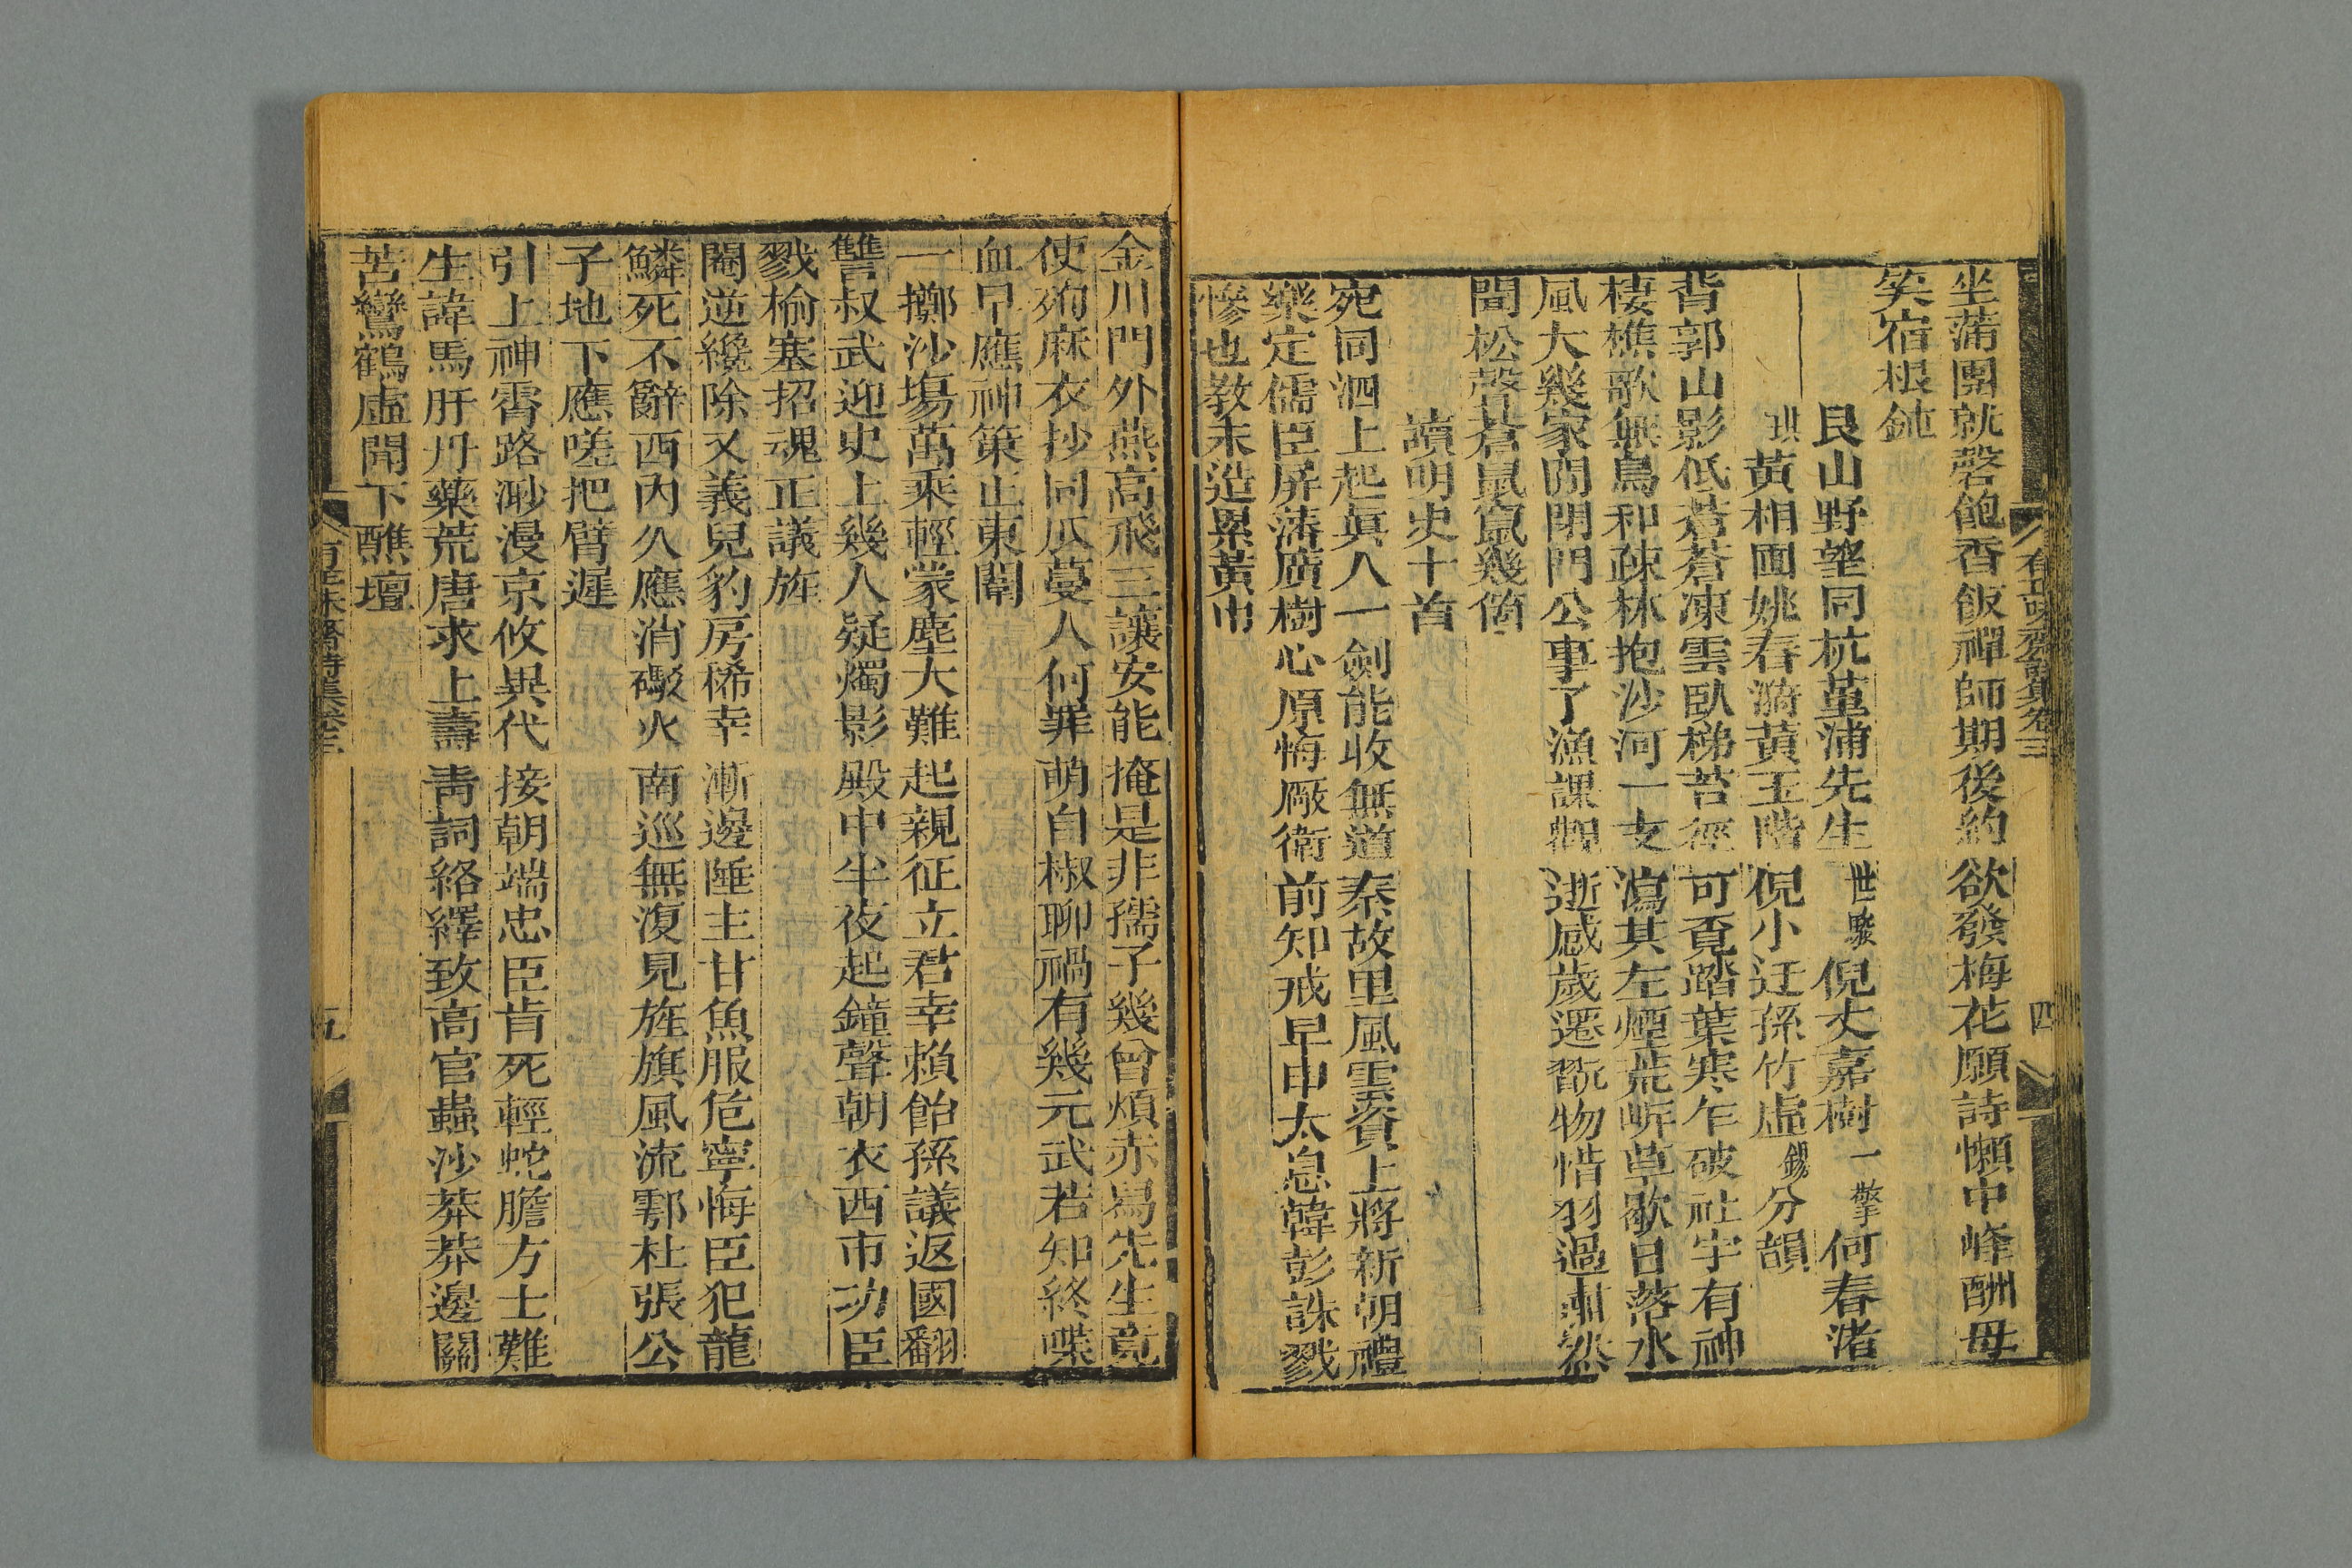 有正味齋詩集卷三
四
坐蒲團就磬飽香飯禪師期後約欲發梅花願詩懶中峰酬母
笑宿根鈍
艮山野望同杭堇浦先生世駿倪丈嘉樹一擎何春渚
琪黃相圃姚春漪黃玉階倪小迂孫竹虛錫分韻
背郭山影低蒼蒼凍雲臥梯苔徑可覔踏葉寒乍破社宇有神
棲樵歌無鳥和疎林抱沙河一支瀉其左煙荒岍草歇日落水
風大幾家閉閉門公事了漁課觀逝感歲遷翫物惜羽過肅然
聞松聲蒼鼠竄幾箇
讀明史十首
宛同泗上起眞人一劍能收無道秦故里風雲資上將新朝禮
樂定儒臣屏藩廣樹心原悔厰衛前知戒早申太息韓彭誅戮
慘也教未造累黃巾
金川門外燕高飛三讓安能掩是非孺子幾曾煩赤舄先生竟
使殉麻衣抄同瓜蔓人何罪萌自椒聊禍有幾元武若知終喋
血早應神策止東闈
一擲沙場萬乘輕蒙塵大難起親征立君幸賴飴孫議返國翻
讐叔武迎史上幾人疑燭影殿中半夜起鐘聲朝衣西市功臣
戮榆塞招魂正議旌
閹逆纔除又義兒豹房俙幸漸邊陲主甘魚服危寧悔臣犯龍
鱗死不辭西內久應消礟火南巡無復見旌旗風流鄠杜張公
子地下應嗟把臂遲
引上神霄路渺漫京攸異代接朝端忠臣肯死輕蛇膽方士難
生諱馬肝丹藥荒唐求上壽靑詞絡繹致高官蟲沙莽莽邊關
苦鸞鶴虛聞下醮壇
有正味齋詩集卷三
五